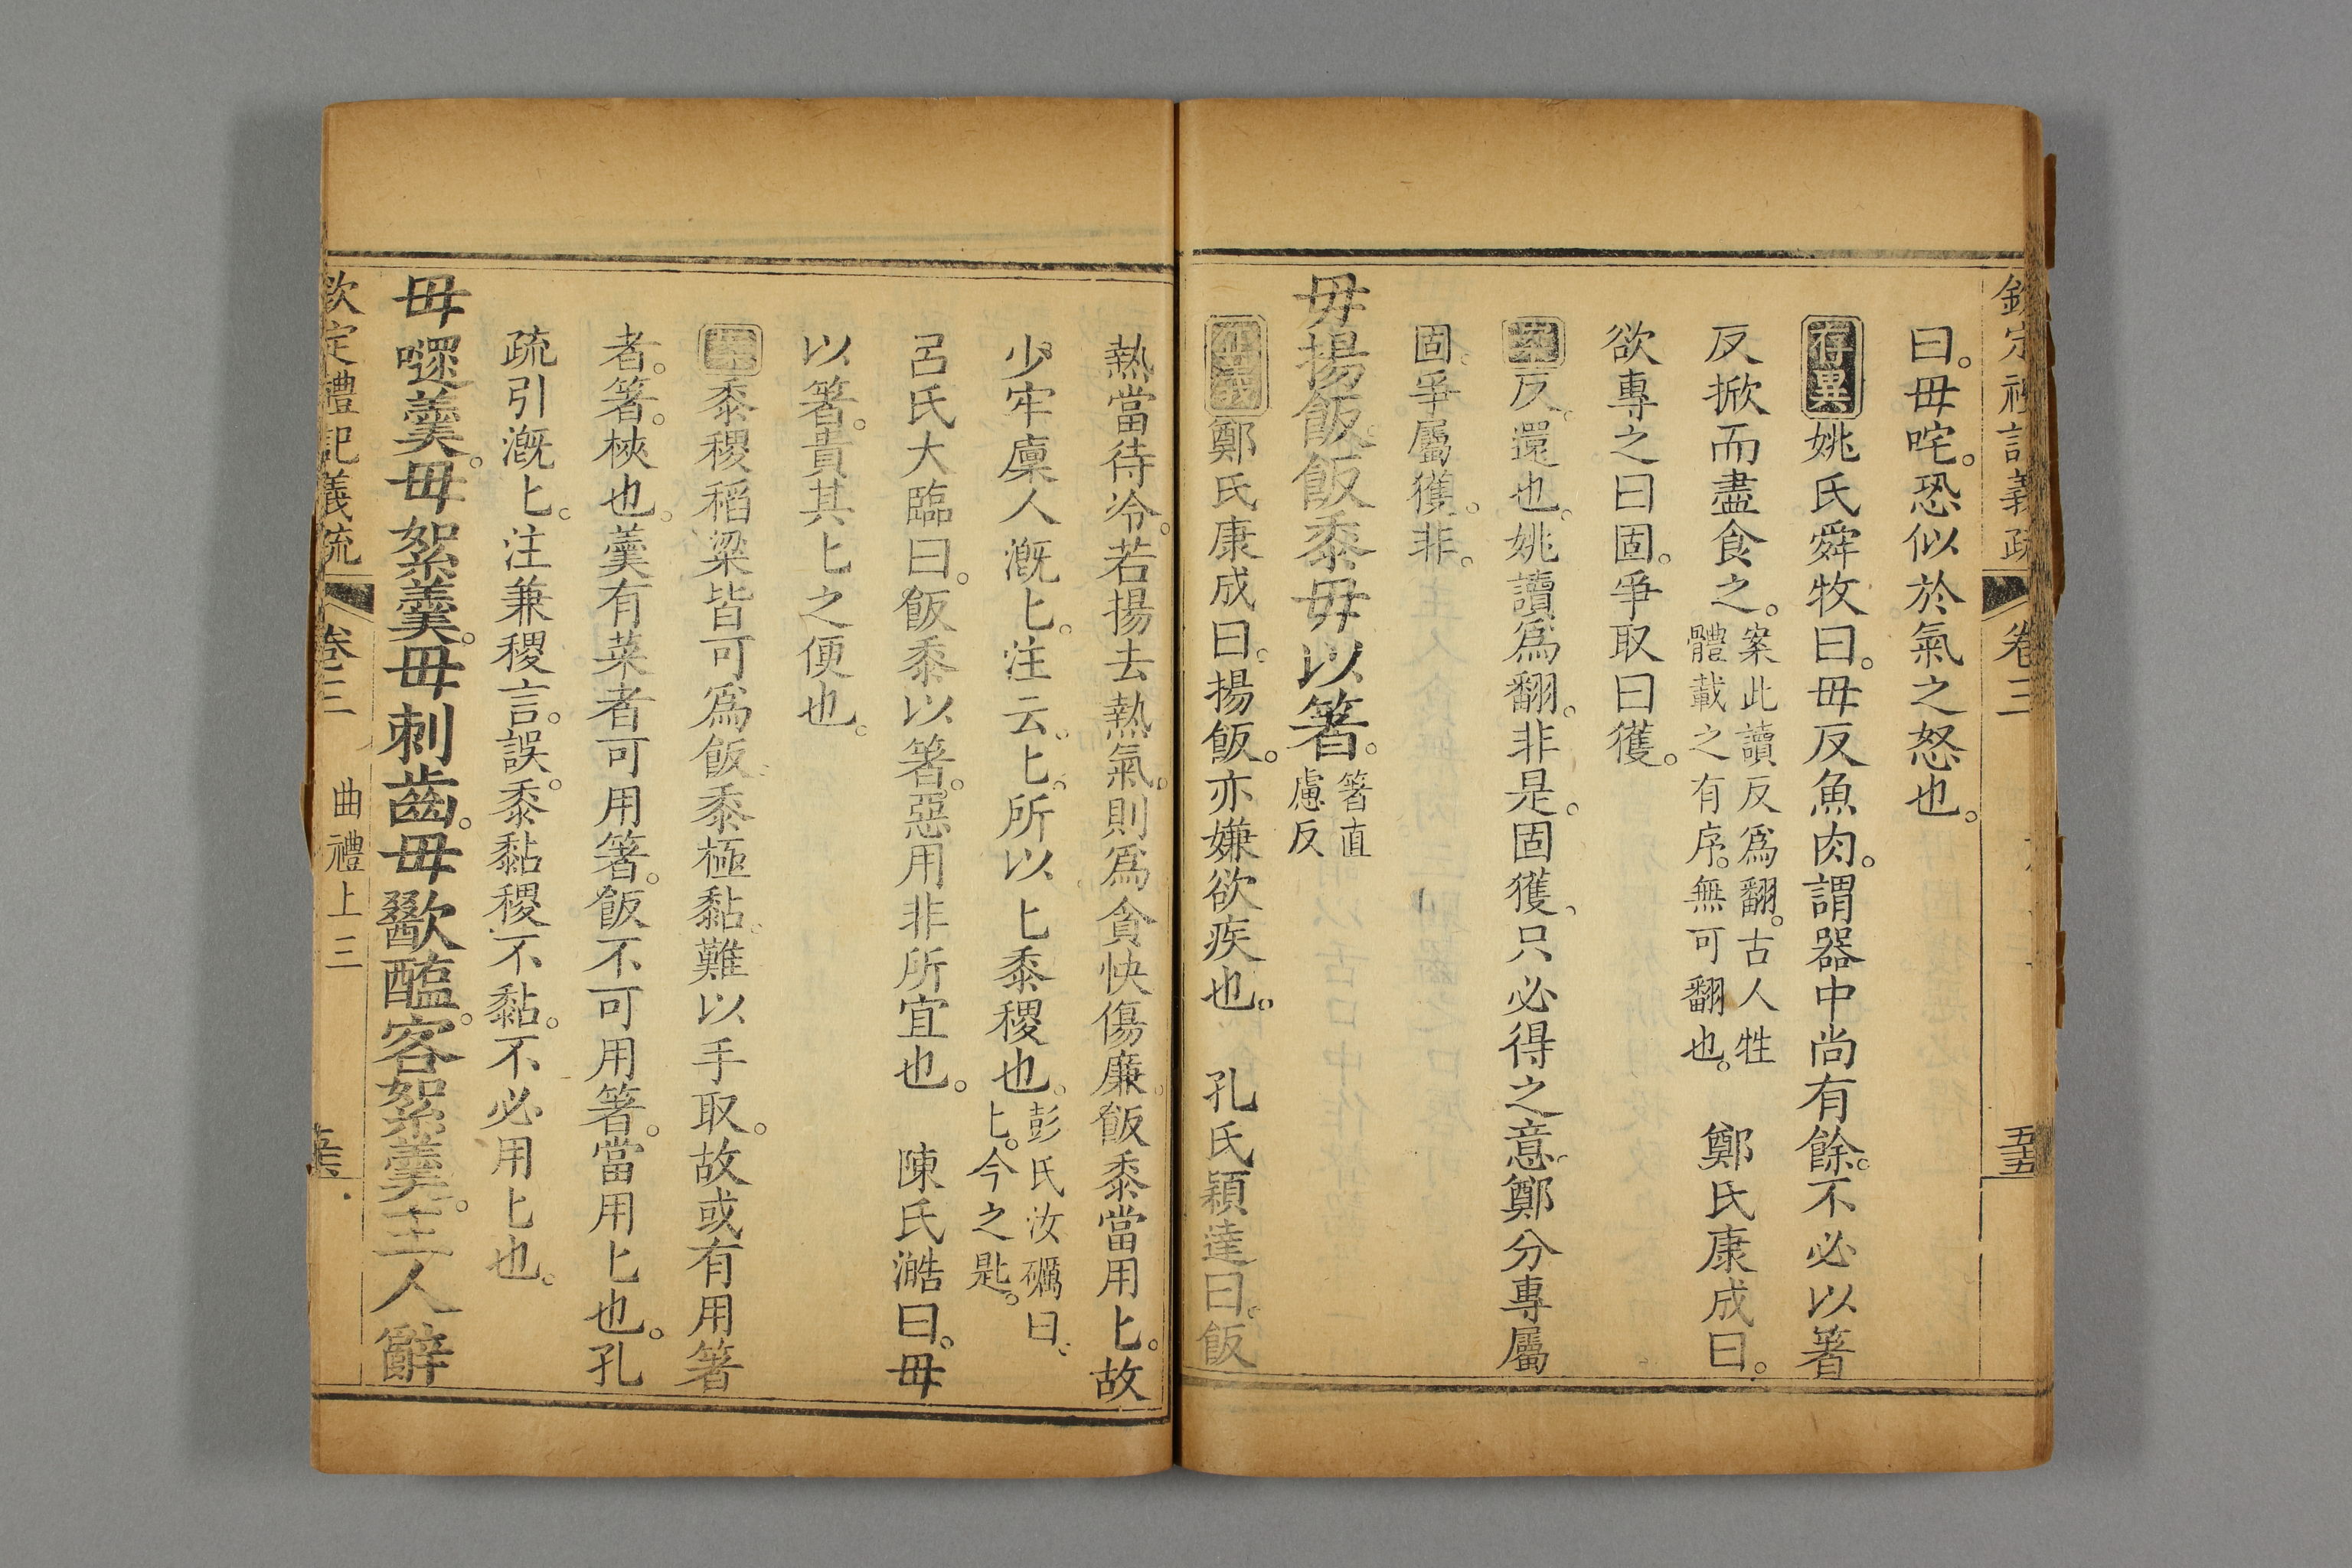 欽定禮記義疏 卷三 五五
曰。毋咤。恐似於氣之怒也。
存異姚氏舜牧曰。毋反魚肉。謂器中尚有餘。不必以箸
反掀而盡食之。案此讀反爲翻。古人牲體載之有序。無可翻也。 鄭氏康成曰。
欲專之曰固。爭取曰獲。
案反。還也。姚讀爲翻。非是。固獲、只必得之意。鄭分專屬
固。爭屬獲。非。
毋揚飯。飯黍毋以箸。箸直慮反
正義鄭氏康成曰。揚飯。亦嫌欲疾也。 孔氏穎達曰。飯
熱當待冷。若揚去熱氣。則爲貪快傷廉。飯黍當用匕。故
少牢廩人漑匕。注云。匕。所以匕黍稷也。彭氏汝礪曰。匕。今之匙。
呂氏大臨曰。飯黍以箸。惡用非所宜也。 陳氏澔曰。毋
以箸。貴其匕之便也。
案黍稷稻粱皆可爲飯。黍極黏。難以手取。故或有用箸
者。箸。梜也。羹有菜者可用箸。飯不可用箸。當用匕也。孔
疏引漑匕。注兼稷言。誤。黍黏稷不黏。不必用匕也。
毋嚃羹。毋絮羹。毋刺齒。毋歠醢。客絮羹。主人辭
欽定禮記義疏 卷三 曲禮上三